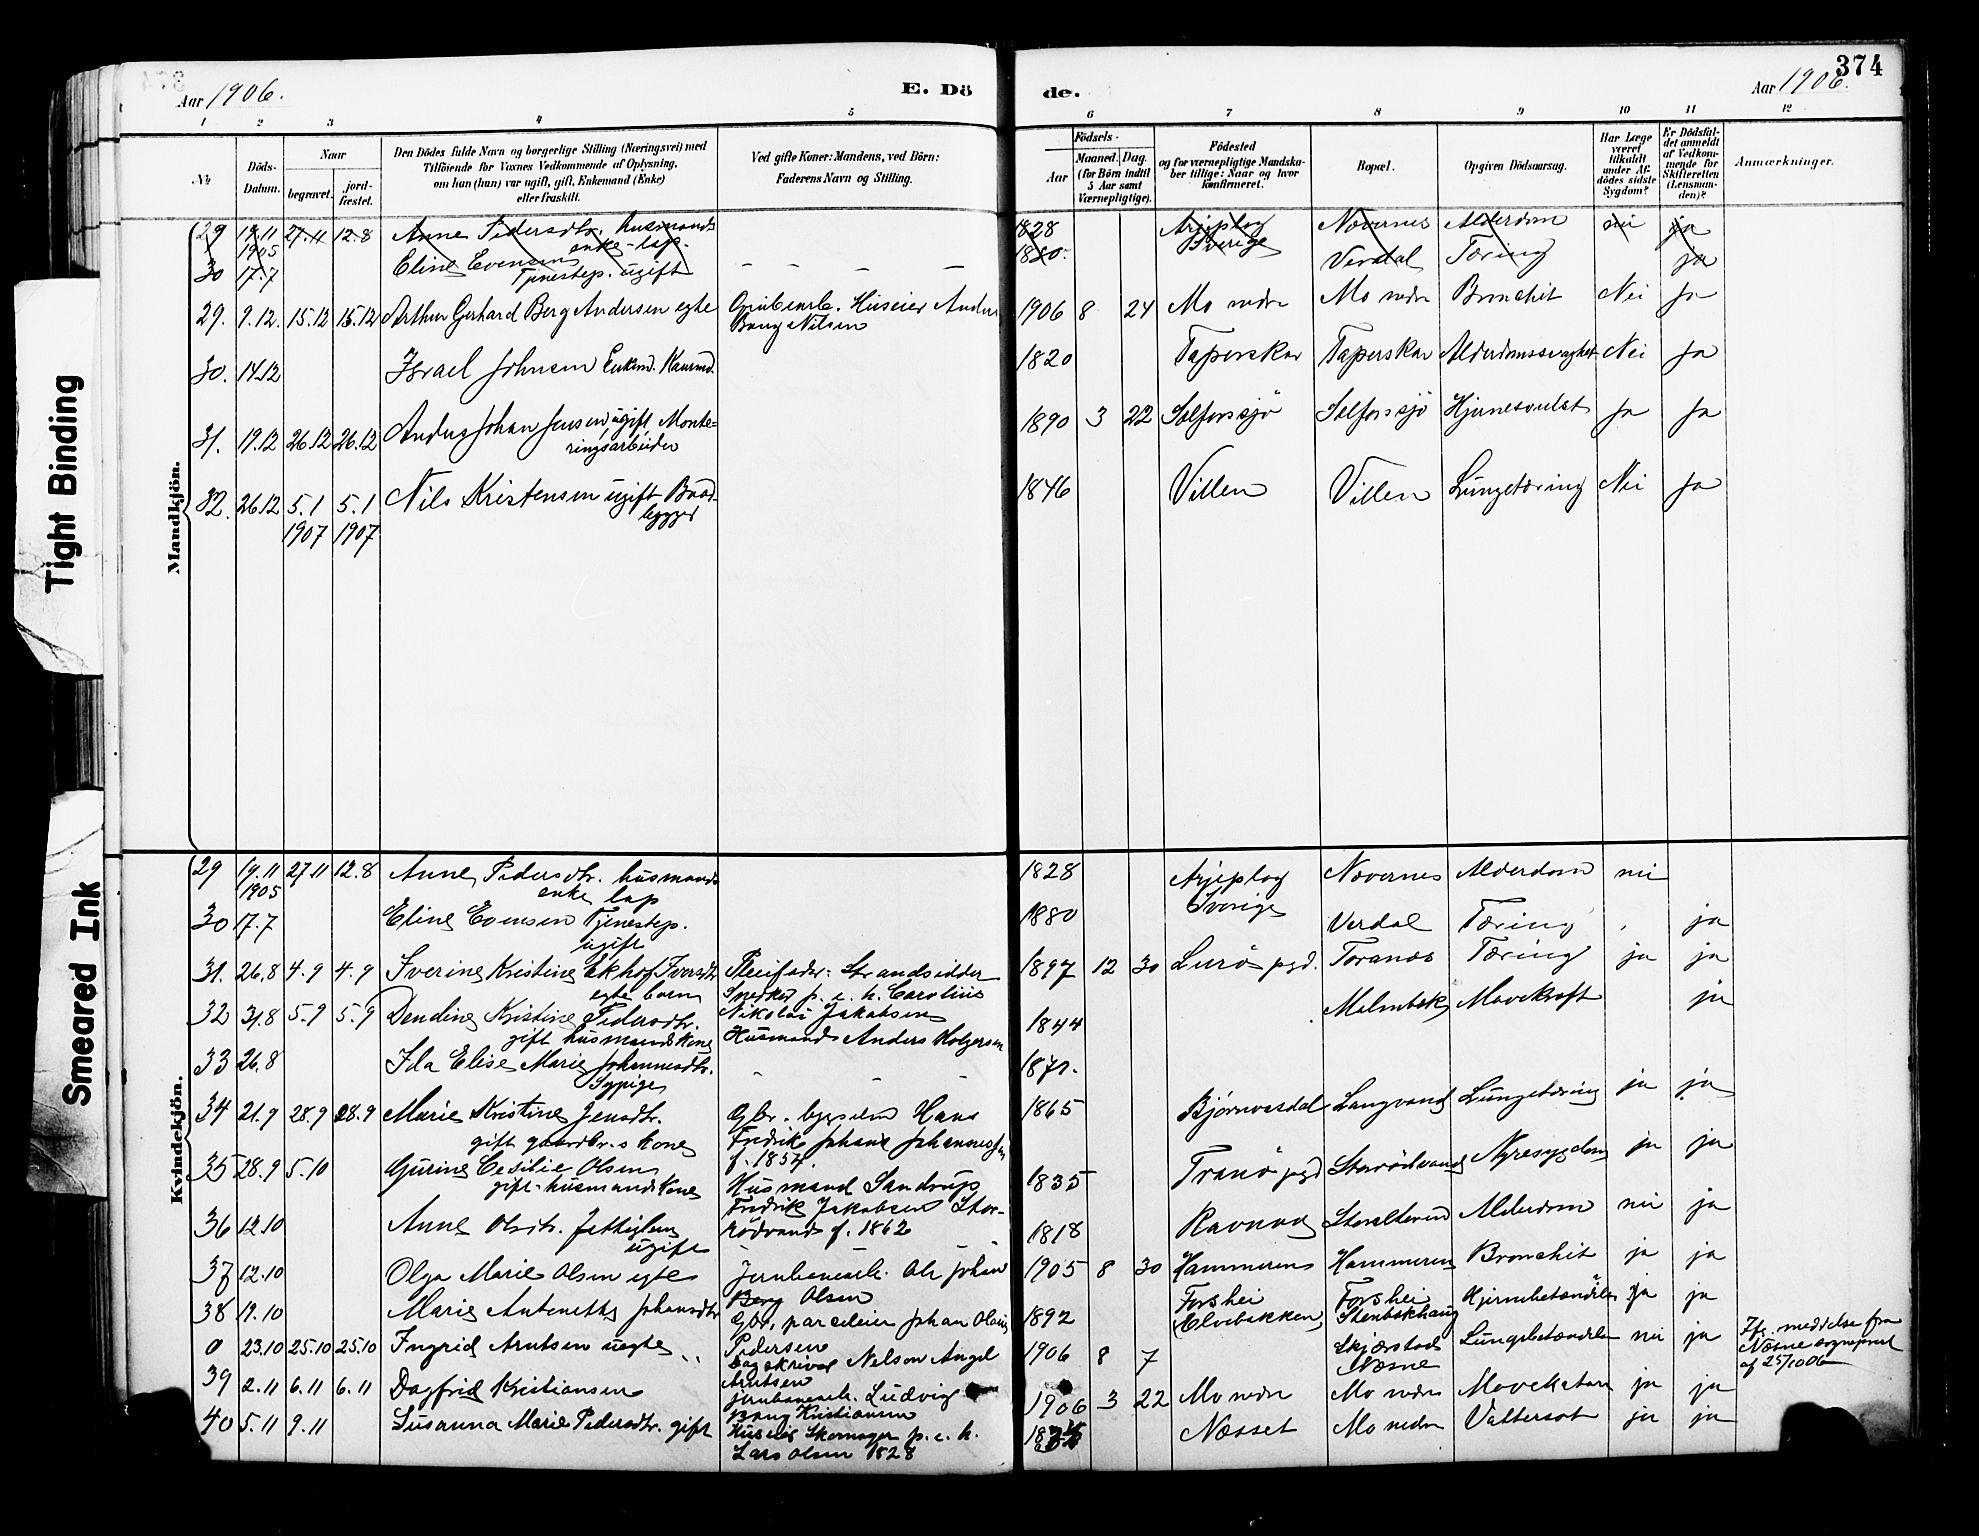 374
Aar 1906.
E. Döde.
Aar 1906.
1 2 3 4 5 6 7 8 9 10 11 12
№
Döds-Datum.
Naar
begravet.
jord-fæstet.
Den Dödes fulde Navn og borgerlige Stilling (Næringsvei) med
Tilföiende for Voxnes Vedkommende af Oplysning,
om han (hun) var ugift, gift, Enkemand (Enke)
eller fraskilt.
Ved gifte Koner: Mandens, ved Börn:
Faderens Navn og Stilling.
Födsels-
Aar
Maaned. Dag.
(for Börn indtil
5 Aar samt
Værnepligtige).
Födested
og for værnepligtige Mandska-
ber tillige: Naar og hvor
konfirmeret.
Bopæl.
Opgiven Dödsaarsag.
Har Læge
været
tilkaldt
under Af-
dödes sidste
Sygdom?
Er Dödsfal-
det anmeldt
af Vedkom-
mende for
Skifteretten
(Lensman-
den)?
Anmærkninger.
Tight Binding
Smeared Ink
Mandkjön.
29 19.11 27.11 12.8 Anne Pedersdtr. husmands 1828 Arjeplog Nævernes Alderdom nei ja
1905 enke - lap. Sverige
30 17.7 Eline Evensen 1880. Verdal Tæring ja
Tjenestep. ugift
29. 9.12. 15.12 15.12 Arthur Gerhard Berg Andersen egte Grubearb. Huseier Anders 1906 8 24 Mo nedre Mo nedre Bronchit Nei Ja
Bang Nilsen
30. 14.12 Israel Johnsen Enkem. Kaarmd. 1820 Taperskar Taperskar Alderdomssvaghet Nei Ja
31. 19.12 26.12 26.12 Anders Johan Jensen, ugift, Monte- 1890 3 22 Selforssjö Selforssjö Hjernesvulst Ja Ja
ringsarbeider
32. 26.12 5.1 5.1 Nils Kristensen ugift Baad- 1846 Villen Villen Lungetæring Nei Ja
1907 1907 bygger
Kvindekjön.
29 19.11 27.11 12.8 Anne Pedersdtr. husmands 1828 Arjeplog Nævernes Alderdom nei
1905 enke lap Sverige
30 17.7 Eline Evensen Tjenestep. 1880 Verdal Tæring ja
ugift
31. 26.8 4.9 4.9 Iverine Kristine Ekhof Iversdtr. Pleiefader: Strandsidder 1897 12 30 Lurö pgd. Toranes Tæring ja ja
egte barn Snedker p. e. h. Carolius
32 31.8 5.9 5.9 Dendine Kristine Pedersdtr. Nikolai Jakobsen 1844 Malmbæk Mavekræft ja
gift husmandskone Husmand Anders Holgersen
33 26.8 Ida Elise Marie Johannesdtr. 1871.
Sypige
34 21.9 28.9 28.9 Marie Kristine Jensdtr. Gbr. Hans 1865 Bjørnvasdal Langvand Lungetæring ja ja
gift gaardbr.s kone Fredrik Johans Johannessen
f. 1854.
35 28.9 5.10 Gurine Cesilie Olsen Husmand Sandrup 1835 Tranö pgd Storrödvand Nyresygdom ja ja
gift husmandskone Fredrik Jakobsen Stor-
36 12.10 Anne Olsdtr. ugift rödvand f. 1862 1818 Ravnaa Storalteren Alderdom nei ja
37 12.10 Olga Marie Olsen egte Jernbanearb. Ole Johan 1905 8 30 Hammeren Hammeren Bronchit ja ja
Berg Olsen
38 19.10 Marie Antonette Johansdtr Gbr, parceleier Johan Olaus 1892 Forshei Forshei Hjernebetændelse ja ja
Pedersen Elvebakken Stenbækhaug
0 23.10 25.10 25.10 Ingrid Arntsen uegte Dagskriver Nelson Angel 1906 8 7 Skjærstad Lungebetændelse nei ja Ifg. meddelse fra
Arntsen Næsne Næsne sogneprest
af 25/10 06
39 2.11 6.11 6.11 Dagfrid Kristiansen Jernbanearb. Ludvig 1906 3 22 Mo nedre Mo nedre Mavekatarr ja ja
Bang Kristiansen
40 5.11 9.11 Susanna Marie Pedersdtr. gift Huseier Skomager p. e. h. Næsset Mo nedre Vattersot ja ja
Lars Olsen 1828